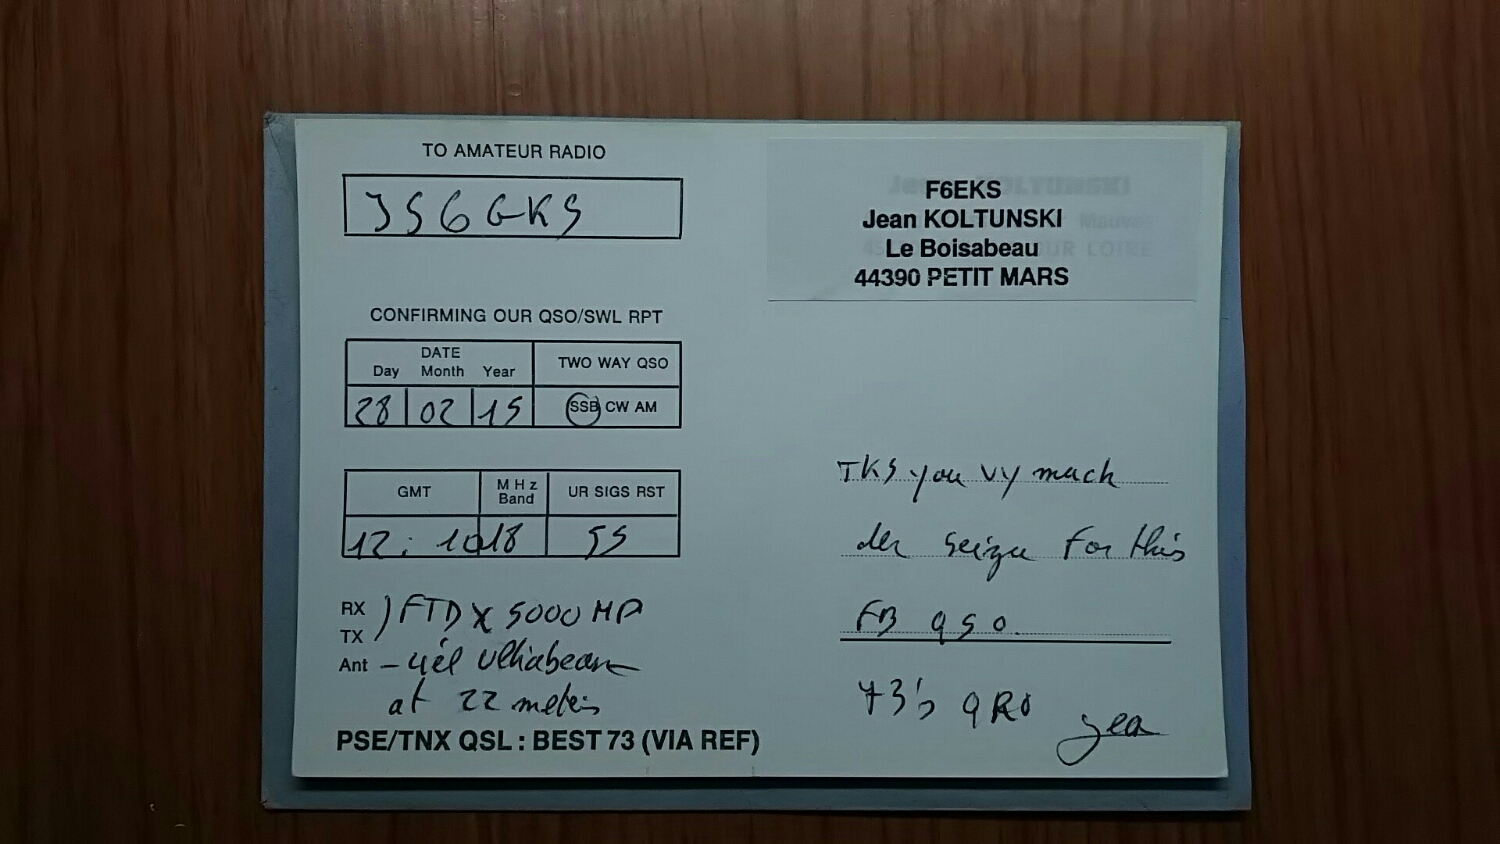 TO AMATEUR RADIO
JS6GKS
CONFIRMING OUR QSO/SWL RPT
DATE
Day Month Year
TWO WAY QSO
28 02 15
SSB CW AM
GMT
MHz Band
UR SIGS RST
12: 10 18 55
RX
TX
) FTDX 5000 MP
Ant - 4él
at 22 meters
PSE/TNX QSL : BEST 73 (VIA REF)
F6EKS
Jean KOLTUNSKI
Le Boisabeau
44390 PETIT MARS
TKS you vy much
for this
FB qso.
73's QRO